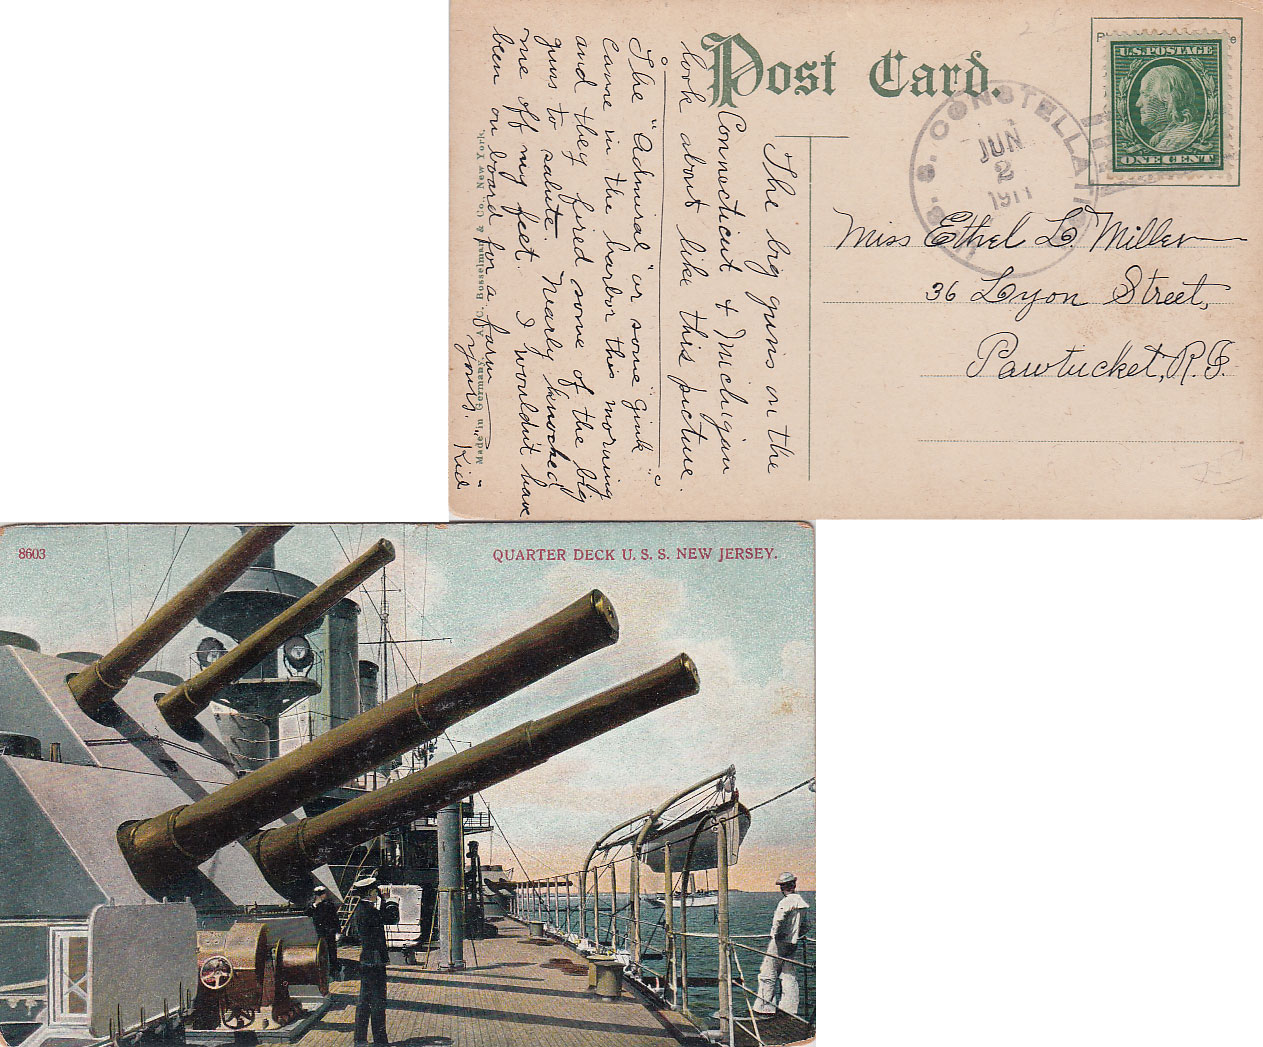 Post Card.
U.S. POSTAGE
ONE CENT
U. S. S. CONSTELLATIO
JUN
2
1911
Miss Ethel L. Miller
36 Lyon Street,
Pawtucket, R.I.
The big guns on the
Connecticut & Michigan
look about like this picture.
The "Admiral" or some "gink"
came in the harbor this morning
and they fired some of the big
guns to salute. Nearly knocked
me off my feet. I wouldn't have
been on board for a farm
Yours, "Kid"
A. C. Bosselman & Co., New York.
Made in Germany
8603
QUARTER DECK U. S. S. NEW JERSEY.